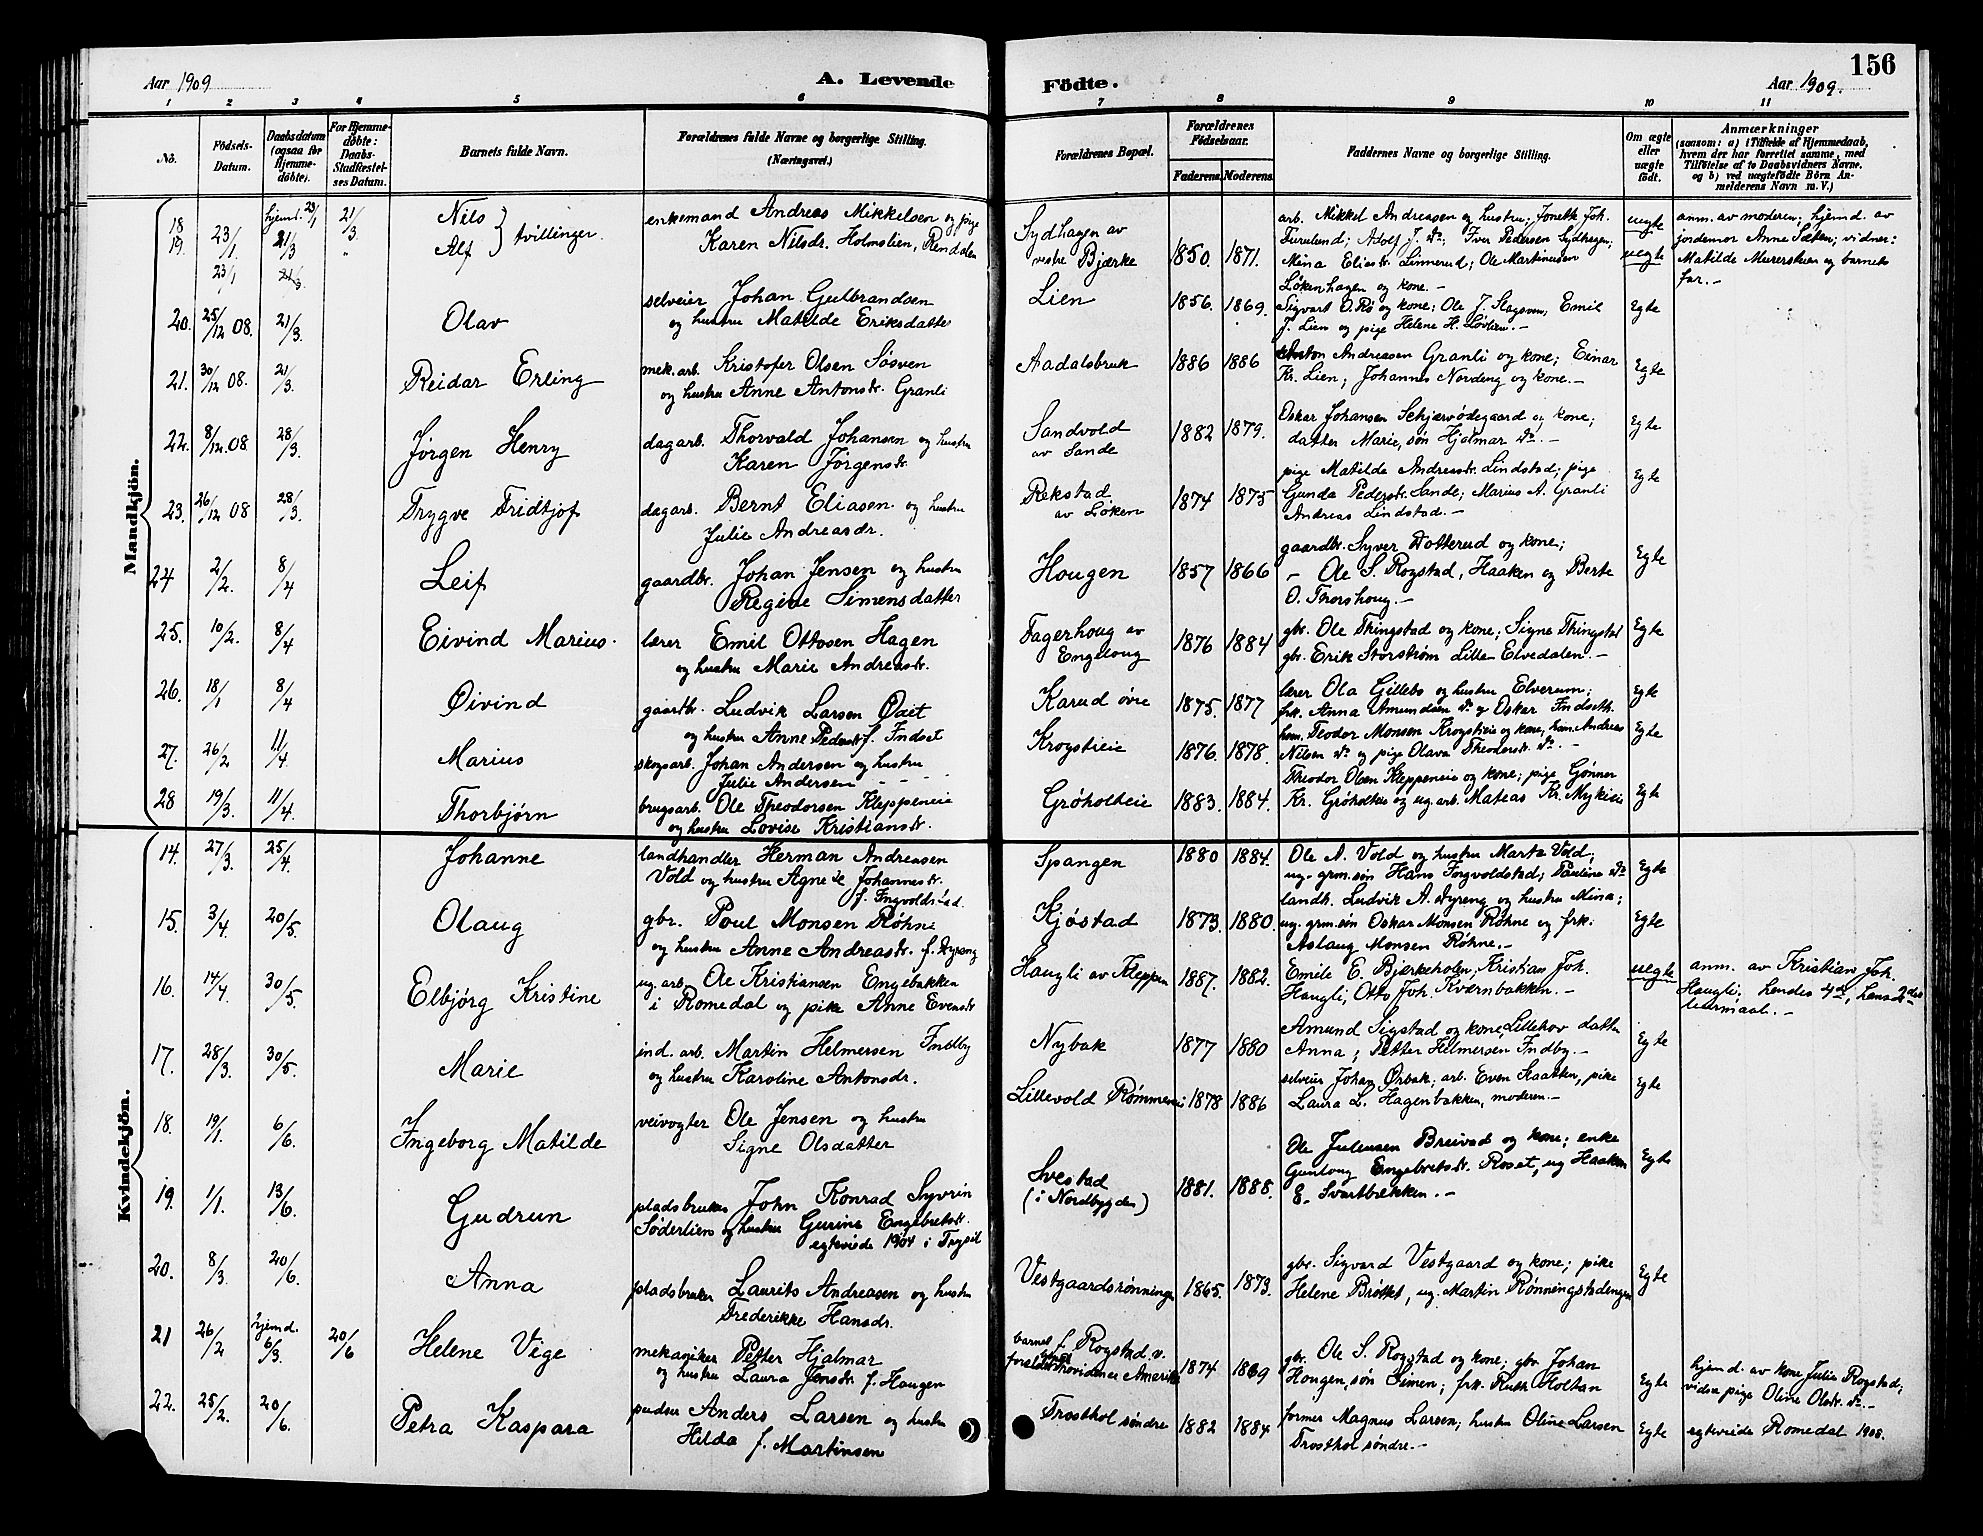 Aar 1909
A. Levende
Födte.
Aar 1909.
156
1 2 3 4 5 6 7 8 9 10 11
No.
Födsels-
Datum.
Daabsdatum
(ogsaa for
Hjemme-
döbte).
For Hjemme-
döbte:
Daabs-
Stadfæstel-
ses Datum.
Barnets fulde Navn.
Forældrenes fulde Navne og borgerlige Stilling.
(Næringsvei.)
Forældrenes Bopæl.
Forældrenes
Födselsaar.
Faderens. Moderens.
Faddernes Navne og borgerlige Stilling.
Om ægte
eller
uægte
födt.
Anmærkninger
(saasom: a) i Tilfælde af Hjemmedaab,
hvem der har forrettet samme, med
Tilföielse af to Daabsvidners Navne.
og b) ved uægtefödte Börn An-
melderens Navn m. V.)
Mandkjön.
18 hjemd. 23/1 21/3 Nils
19. 23/1 21/3 " Alf } tvillinger.
23/1 21/3
enkemand Andreas Mikkelsen og pige
Karen Nilsdr. Holmslien, Rendalen
Sydhagen av
vestre Bjærke
1850. 1871.
arb. Mikkel Andreasen og hustru; Jonette Joh.
Furulund; Adolf J. do; Iver Pedersen Sydhagen;
Mina Eliasdr. Linnerud; Ole Martinusen
Løkenhagen og kone. -
uegte
uegte
anm. av moderen; hjemd. av
jordemor Anne Sæten; vidner:
Matilde Murersteen og barnets
far. -
20. 25/12 08. 21/3 Olav
selveier Johan Gulbrandsen
og hustru Matilde Eriksdatter
Lien 1856. 1869.
Sigvart O. Rø og kone; Ole J. Slagsven; Emil
J. Lien og pige Helene H. Løvlien. -
Egte
21. 30/12 08. 21/3 Reidar Erling
mek. arb. Kristofer Olsen Søsven
og hustru Anne Antonsdr. Granli
Aadalsbruk 1886 1886
Anton Andreasen Granli og kone; Einar
Kr. Lien; Johannes Nordeng og kone. -
Egte
22. 8/12 08 28/3 Jørgen Henry
dagarb. Thorvald Johansen og hustru
Karen Jørgensdr.
Sandvold
av Sande
1882 1879.
Oskar Johansen Schjærvødegaard og kone;
datter Marie, søn Hjalmar do. -
Egte
23. 26/12 08 28/3 Trygve Fridtjof
dagarb. Bernt Eliasen og hustru
Julie Andreasdr.
Rekstad
av Løken
1874 1875
pige Matilde Andreasdr. Lindstad; pige
Gunda Pedersdr. Sande; Marius A. Granli
Andreas Lindstad. -
Egte
24 2/2. 8/4 Leif
gaardbr. Johan Jensen og hustru
Regine Simensdatter
Hougen 1857 1866
gaardbr. Syver Dotterud og kone;
- Ole S. Rogstad, Haaken og Berte
O. Thorshoug. -
Egte
25. 10/2. 8/4 Eivind Marius.
lærer Emil Ottosen Hagen
og hustru Marie Andreasdr.
Fagerhoug av
Engeloug
1876 1884
gbr. Ole Thingstad og kone; Signe Thingstad
gbr. Erik Storstrøm Lille Elvedalen. -
Egte
26. 18/1 8/4 Øivind
gaardbr. Ludvik Larsen Oset
og hustru Anne Pedersdr. f. Indset
Karud øvre 1875. 1877
lærer Ola Gillebo og hustru Elverum;
frk. Anna Amundsen do og Oskar Indseth.
Egte
27. 26/2 11/4 Marius
skogsarb. Johan Andersen og hustru
Julie Andersen - - - -
Krogstieie 1876. 1878.
hsm. Teodor Monsen Krogstieie og kone, hsm. Andreas
Nilsen do og pige Olava Theodorsdr. do. -
Egte
28 19/3. 11/4. Thorbjørn
brugsarb. Ole Theodorsen Kleppeneie
og hustru Lovise Kristiansdr.
Grøholteie 1883. 1884.
Theodor Olsen Kleppeneie og kone; pige Gønner
Kr. Grøholteie og ug. arb. Mateas Kr. Mykieie
Egte
Kvindekjön.
14. 27/3. 25/4. Johanne
landhandler Herman Andreasen
Vold og hustru Agnete Johannesdr.
f. Ingvoldstad.
Spangen 1880 1884.
Ole A. Vold og hustru Marta Vold;
ug. grm. søn Hans Ingvoldstad; Pauline do
Egte
15. 3/4. 20/5. Olaug
gbr. Poul Monsen Røhne
og hustru Anne Andreasdr. f. Dyreng
Kjøstad 1873. 1880.
landh. Ludvik A. Dyreng og hustru Mina;
ug. grm. søn Oskar Monsen Røhne og frk.
Aslaug Monsen Røhne. -
Egte
16. 14/4. 30/5. Elbjørg Kristine
ug. arb. Ole Kristiansen Engebakken
i Romedal og pike Anne Evensdr.
Haugli av Kleppen 1887. 1882.
Emile E. Bjerkeholen; Kristian Joh.
Haugli; Otto Joh. Kværnbakken. -
uegte
anm. av Kristian Joh.
Haugli; hendes 4de, hans 2det
leiermaal. -
17. 28/3. 30/5. Marie
ind. arb. Martin Helmersen Indby
og hustru Karoline Antonsdr.
Nybak 1877 1880
Amund Sigstad og kone, Lillehov datter
Anna; Petter Helmersen Indby. -
Egte
18. 19/1. 6/6. Ingeborg Matilde
veivogter Ole Jensen og hustru
Signe Olsdatter
Lillevold Rømmeneie 1878 1886
selveier Johan Ørbak; arb. Even Kaatten, pike
Laura L. Hagenbakken, moderen. -
Egte
19. 1/1. 13/6. Gudrun
pladsbruker John Konrad Syvrin
Søderlien og hustru Gurine Engebretsdr.
egteviede 1904 i Trysil
Svestad
(i Nordbygden)
1881. 1888.
Ole Juliussen Breivad og kone; enke
Gunloug Engebretsdr. Roset, ug. Haaken
E. Svartbækken. -
Egte
20. 8/3. 20/6. Anna
pladsbruker Laurits Andreasen og hustru
Frederikke Hansdr.
Vestgaardsrønningen 1865. 1873.
gbr. Sigvard Vestgaard og kone; pike
Helene Brøttet, ug. Martin Rønningstadengen
Egte
21 26/2 hjemd. 6/3. 20/6 Helene Vige
mekaniker Petter Hjalmar
og hustru Laura Jensdr. f. Haugen
barnet f. Rogstad v.
foreldre Providence Amerika
1874 1869
gbr. Ole S. Rogstad og kone; gbr. Johan
Hougen, søn Simen; frk. Ruth Holtan
Egte
hjemd. av kone Julia Rogstad;
vidne pige Oline Olsdr. do. -
22. 25/2. 20/6. Petra Kaspara
pudser Anders Larsen og hustru
Hilda f. Martinsen
Frosthol søndre 1882 1884
former Magnus Larsen; hustru Oline Larsen
Frosthol søndre. -
Egte
egteviede Romedal 1908.